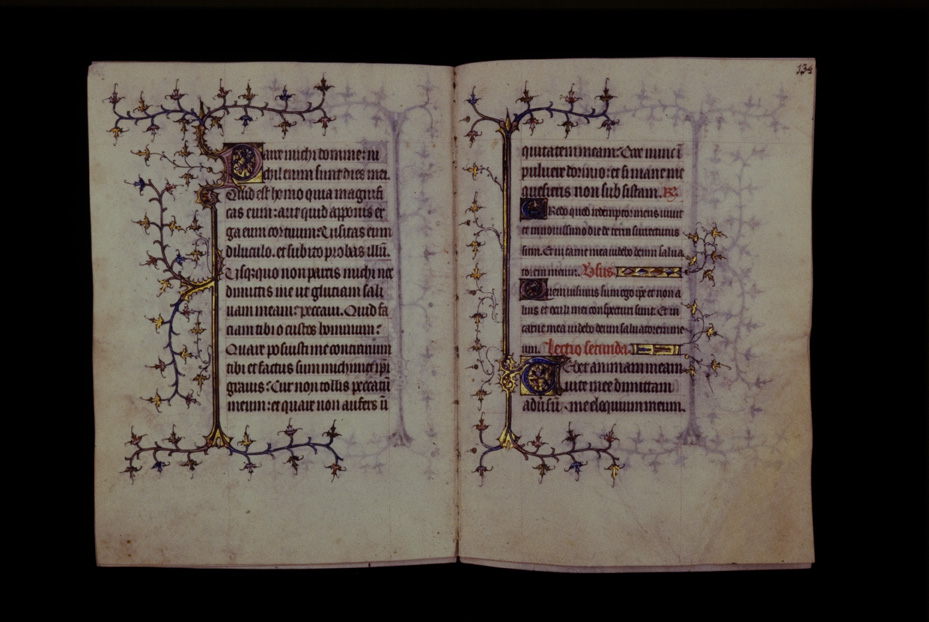 Parce michi domine: ni
chil enim sunt dies mei.
Quid est homo quia magnifi
cas eum: aut quid apponis er
ga eum cor tuum: Visitas eum
diluculo. et subito probas illū.
Vsq quo non parcis michi nec
dimittis me ut gluciam sali
uam meam: peccaui. Quid fa
ciam tibi o custos hominum:
Quare posuisti me contrarium
tibi et factus sum michimetipi
grauis: Cur non tollis peccatū
meum: et quare non aufers ū
134
quitatem meam: Ecce nunc ī
puluere dormio: et si mane me
quesieris non subsistam. R.
Credo quod redemptor meus uiuit
et in nouissimo die de terra surrecturus
sum. Et in carne mea uidebo deum saluato
rem meum. Vsus
Quem uisurus sum ego ipe et non a
lius et oculi mei conspecturi sunt. Et in
carne mea uidebo deum saluatorem me
um. Lectio secunda.
Tedet animam meam
uite mee dimittam
aduersū me eloquium meum.